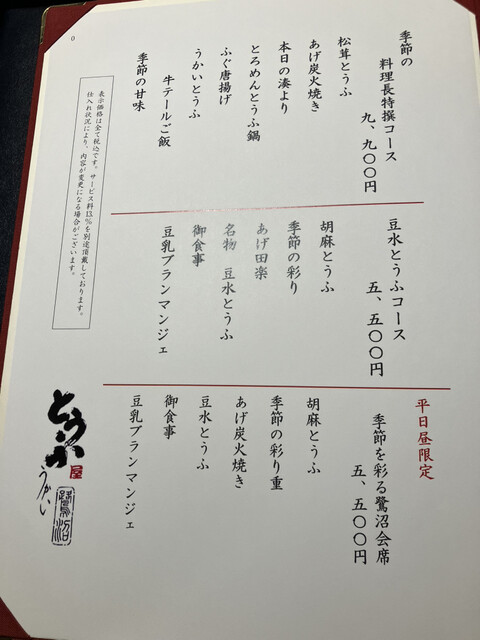 季節の
料理長特撰コース
九、九〇〇円
松茸とうふ
あげ炭火焼き
本日の湊より
とろめんとうふ鍋
ふぐ唐揚げ
うかいとうふ
牛テールご飯
季節の甘味
豆水とうふコース
五、五〇〇円
胡麻とうふ
季節の彩り
あげ田楽
名物 豆水とうふ
御食事
豆乳ブランマンジェ
平日昼限定
季節を彩る鷺沼会席
五、五〇〇円
胡麻とうふ
季節の彩り重
あげ炭火焼き
豆水とうふ
御食事
豆乳ブランマンジェ
表示価格は全て税込です。サービス料13%を別途頂戴しております。
仕入れ状況により、内容が変更になる場合がございます。
とうふ
屋
うかい
鷺沼